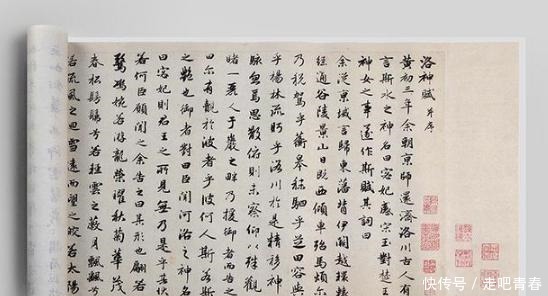 洛神賦 并序
黃初三年余朝京師還濟洛川古人有
言斯水之神名曰宓妃感宋玉對楚王
神女之事遂作斯賦其詞曰
余從京域言歸東藩背伊闕越轘轅
經通谷陵景山日既西傾車殆馬煩爾
乃稅駕乎蘅皋秣駟乎芝田容與
乎楊林流眄乎洛川於是精移神
駭忽焉思散俯則未察仰以殊觀
睹一麗人于巖之畔乃援御者而告之
曰尔有覿於彼者乎彼何人斯若
之豔也御者對曰臣聞河洛之神名
曰宓妃則君王之所見無乃是乎其
若何臣願聞之余告之曰其形也翩若
驚鴻婉若游龍榮曜秋菊華茂
春松髣髴兮若輕雲之蔽月飄颻兮
若流風之回雪遠而望之皎若太陽
快传号 / 走吧青春